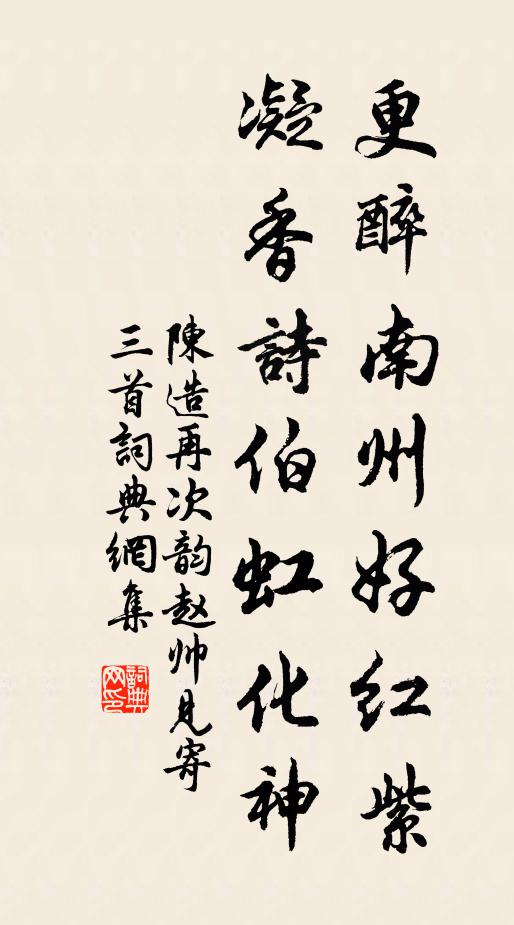 更醉南州好红紫
凝香詩伯虹化神
陳造再次韵赵帅见寄
三首詞典網集
詞典网印